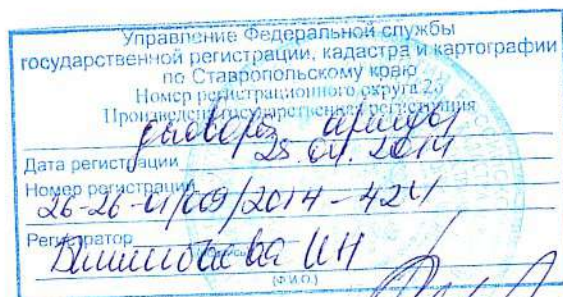 Управление Федеральной службы
государственной регистрации, кадастра и картографии
по Ставропольскому краю
Номер регистрационного округа 26
Произведена государственная регистрация
договора аренды
Дата регистрации 25.04.2014
Номер регистрации
26-26-01/009/2014-424
Регистратор
И Н
(Ф.И.О.)